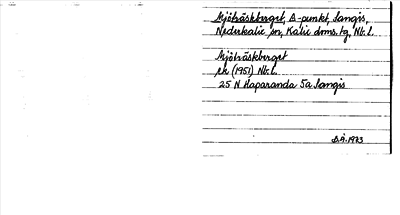 Mjöträskberget, Δ-punkt, Sangis,
Nederkalix sn, Kalix doms. tg, Nb. L.
Mjöträskberget
ek (1951) Nb. L.
25 N Haparanda 5a Sangis
B.Å. 1973